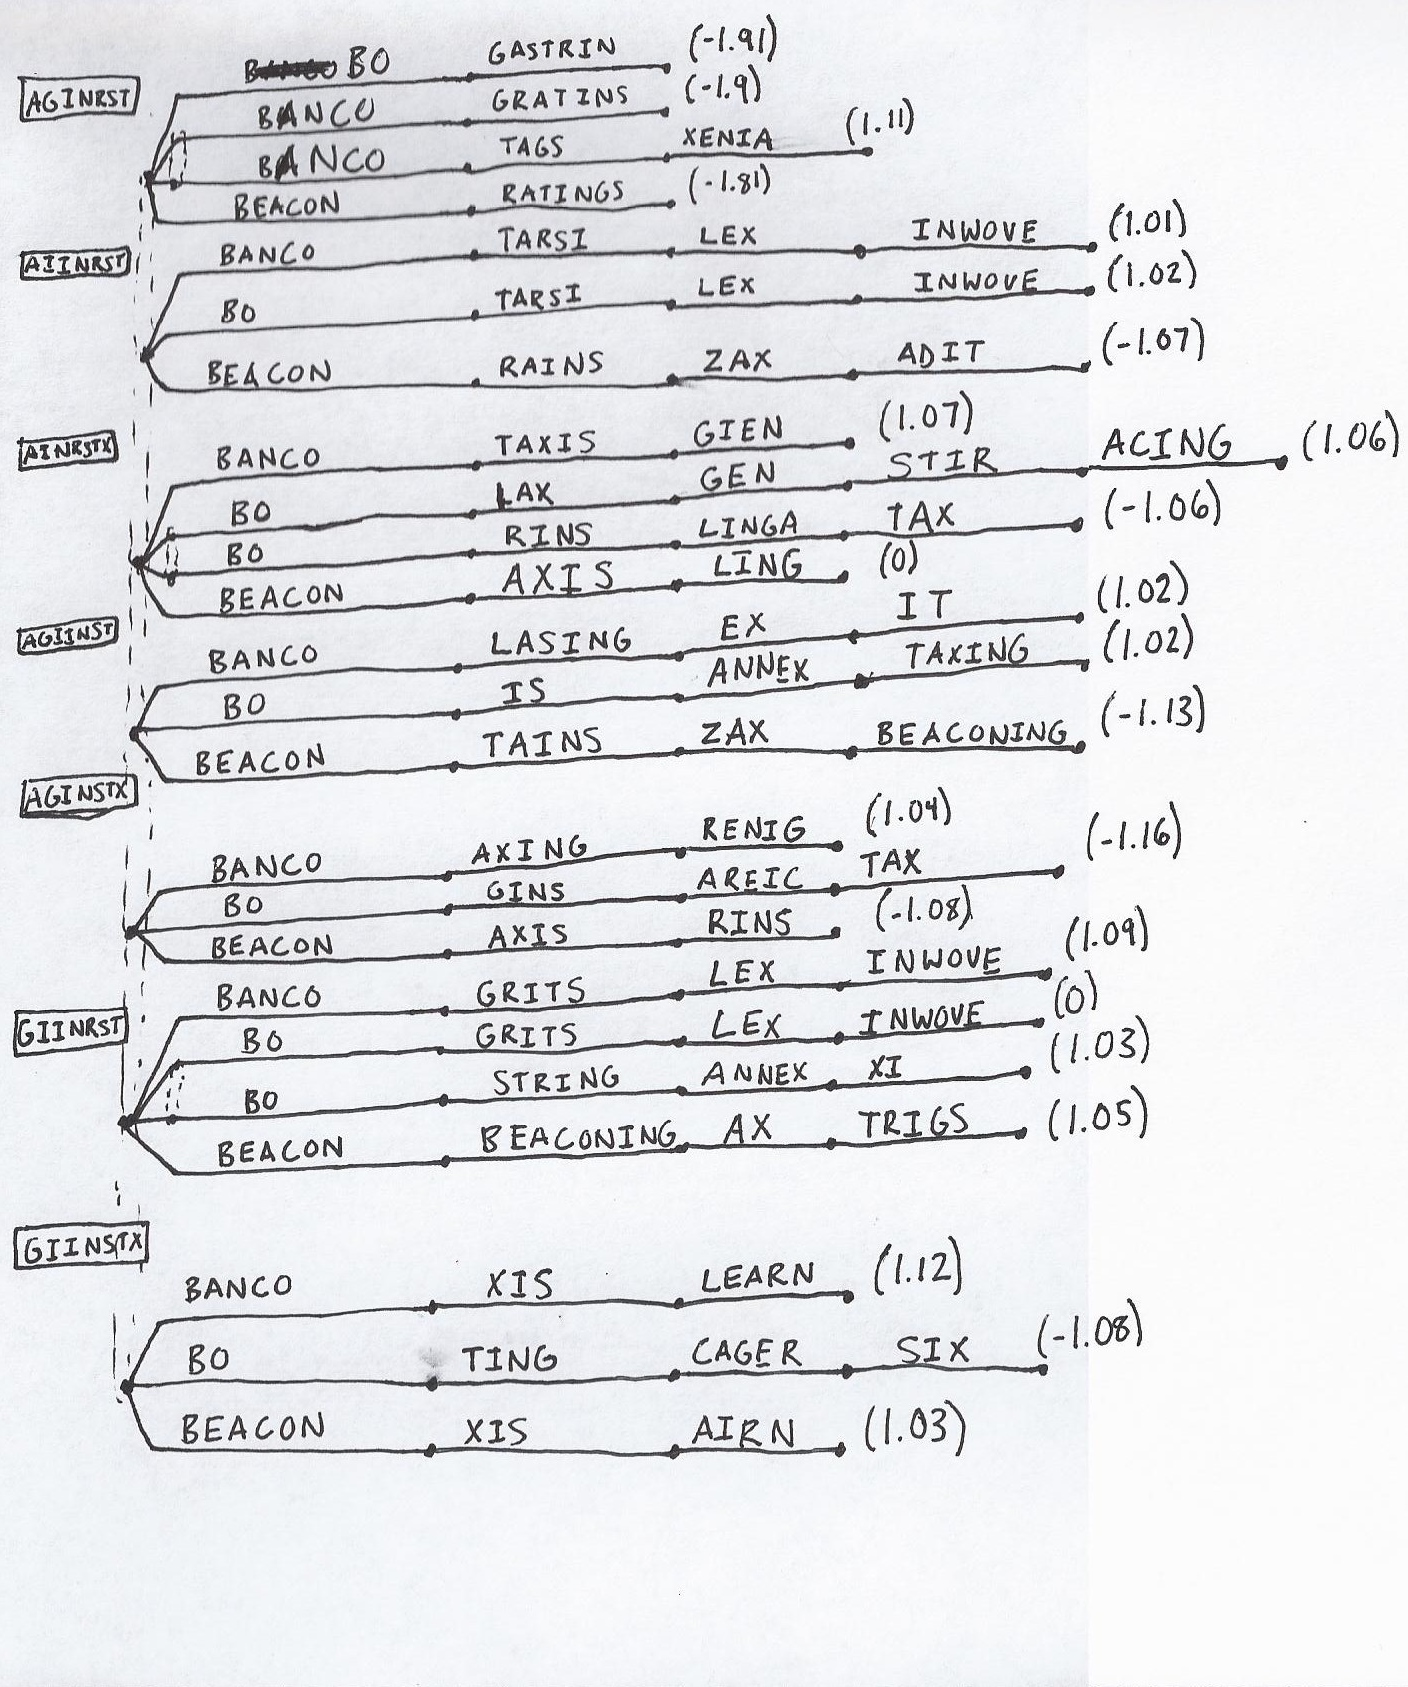 BO GASTRIN (-1.91)
AGINRST
BANCO GRATINS (-1.9)
BANCO TAGS XENIA (1.11)
BEACON RATINGS (-1.81)
AIINRST
BANCO TARSI LEX INWOVE (1.01)
BO TARSI LEX INWOVE (1.02)
BEACON RAINS ZAX ADIT (-1.07)
AINRSTX
BANCO TAXIS GIEN (1.07)
BO LAX GEN STIR ACING (1.06)
BO RINS LINGA TAX (-1.06)
BEACON AXIS LING (0)
AGIINST
BANCO LASING EX IT (1.02)
BO IS ANNEX TAXING (1.02)
BEACON TAINS ZAX BEACONING (-1.13)
AGINSTX
BANCO AXING RENIG (1.04)
BO GINS AREIC TAX (-1.16)
BEACON AXIS RINS (-1.08)
BANCO GRITS LEX INWOVE (1.09)
GIINRST
BO GRITS LEX INWOVE (0)
BO STRING ANNEX XI (1.03)
BEACON BEACONING AX TRIGS (1.05)
GIINSTX
BANCO XIS LEARN (1.12)
BO TING CAGER SIX (-1.08)
BEACON XIS AIRN (1.03)